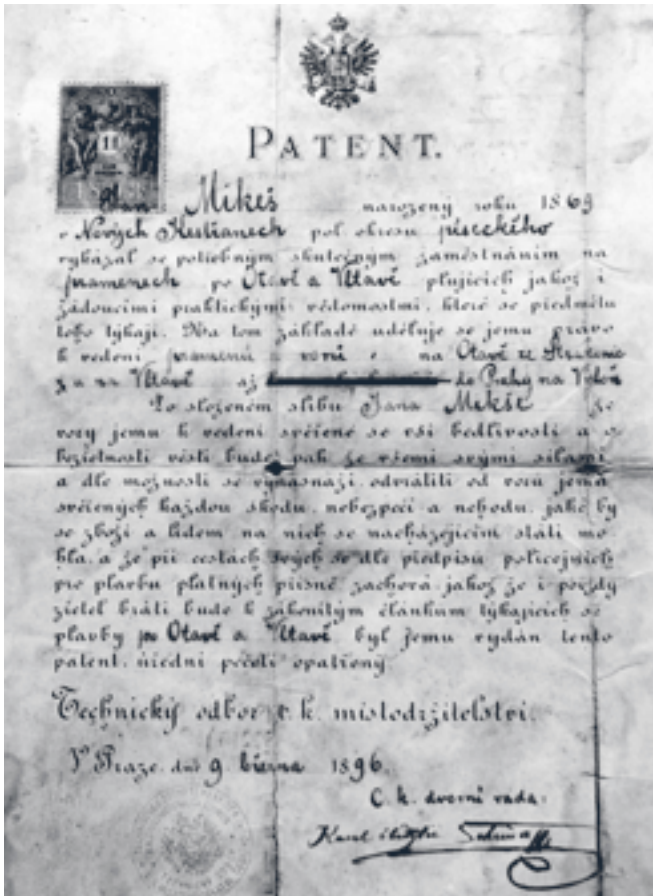 PATENT.
Jan Mikeš narozený roku 1869
v Nových Kestřanech pol. okresu píseckého
vykázal se potřebným skutečným zaměstnáním na
pramenech po Otavě a Vltavě plujících jakož i
žádoucími praktickými vědomostmi, které se předmětu
toho týkají. Na tom základě uděluje se jemu právo
k vedení pramenů a vorů na Otavě ze
a na Vltavě až do Prahy na
Po složeném slibu Jana Mikše že
vory jemu k vedení svěřené se vší bedlivostí a o
bezřetností vésti bude, pak že všemi svými silami
a dle možnosti se vynasnaží, odvrátiti od vorů jemu
svěřených každou škodu, nebezpečí a nehodu, jaké by
se zboží a lidem na nich se nacházejícím státi mo
hla, a že při cestách svých se dle předpisů policejních
pro plavbu platných přísně zachová, jakož že i pozdy
zřetel bráti bude k zákonitým článkům týkajících se
plavby po Otavě a Vltavě byl jemu vydán tento
patent, úřední pečetí opatřený
Technický odbor c. k. místodržitelství.
V Praze, dne 9. března 1896.
C. k. dvorní rada:
Karel